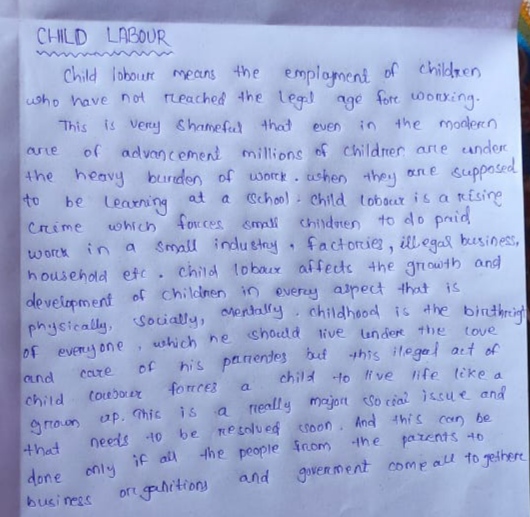 CHILD LABOUR
Child labour means the employment of children
who have not reached the legal age for working.
This is very shameful that even in the modern
are of advancement millions of children are under
the heavy burden of work. when they are supposed
to be learning at a school. child labour is a rising
crime which forces small children to do paid
work in a small industry, factories, illegal business,
household etc. child labour affects the growth and
development of children in every aspect that is
physically, socially, mentally. childhood is the birthrigh
of everyone, which he should live under the love
and care of his parentes but this ilegal act of
child labour forces a child to live life like a
grown up. This is a really major social issue and
that needs to be resolved soon. And this can be
done only if all the people from the parents to
business organitions and goverment come all together